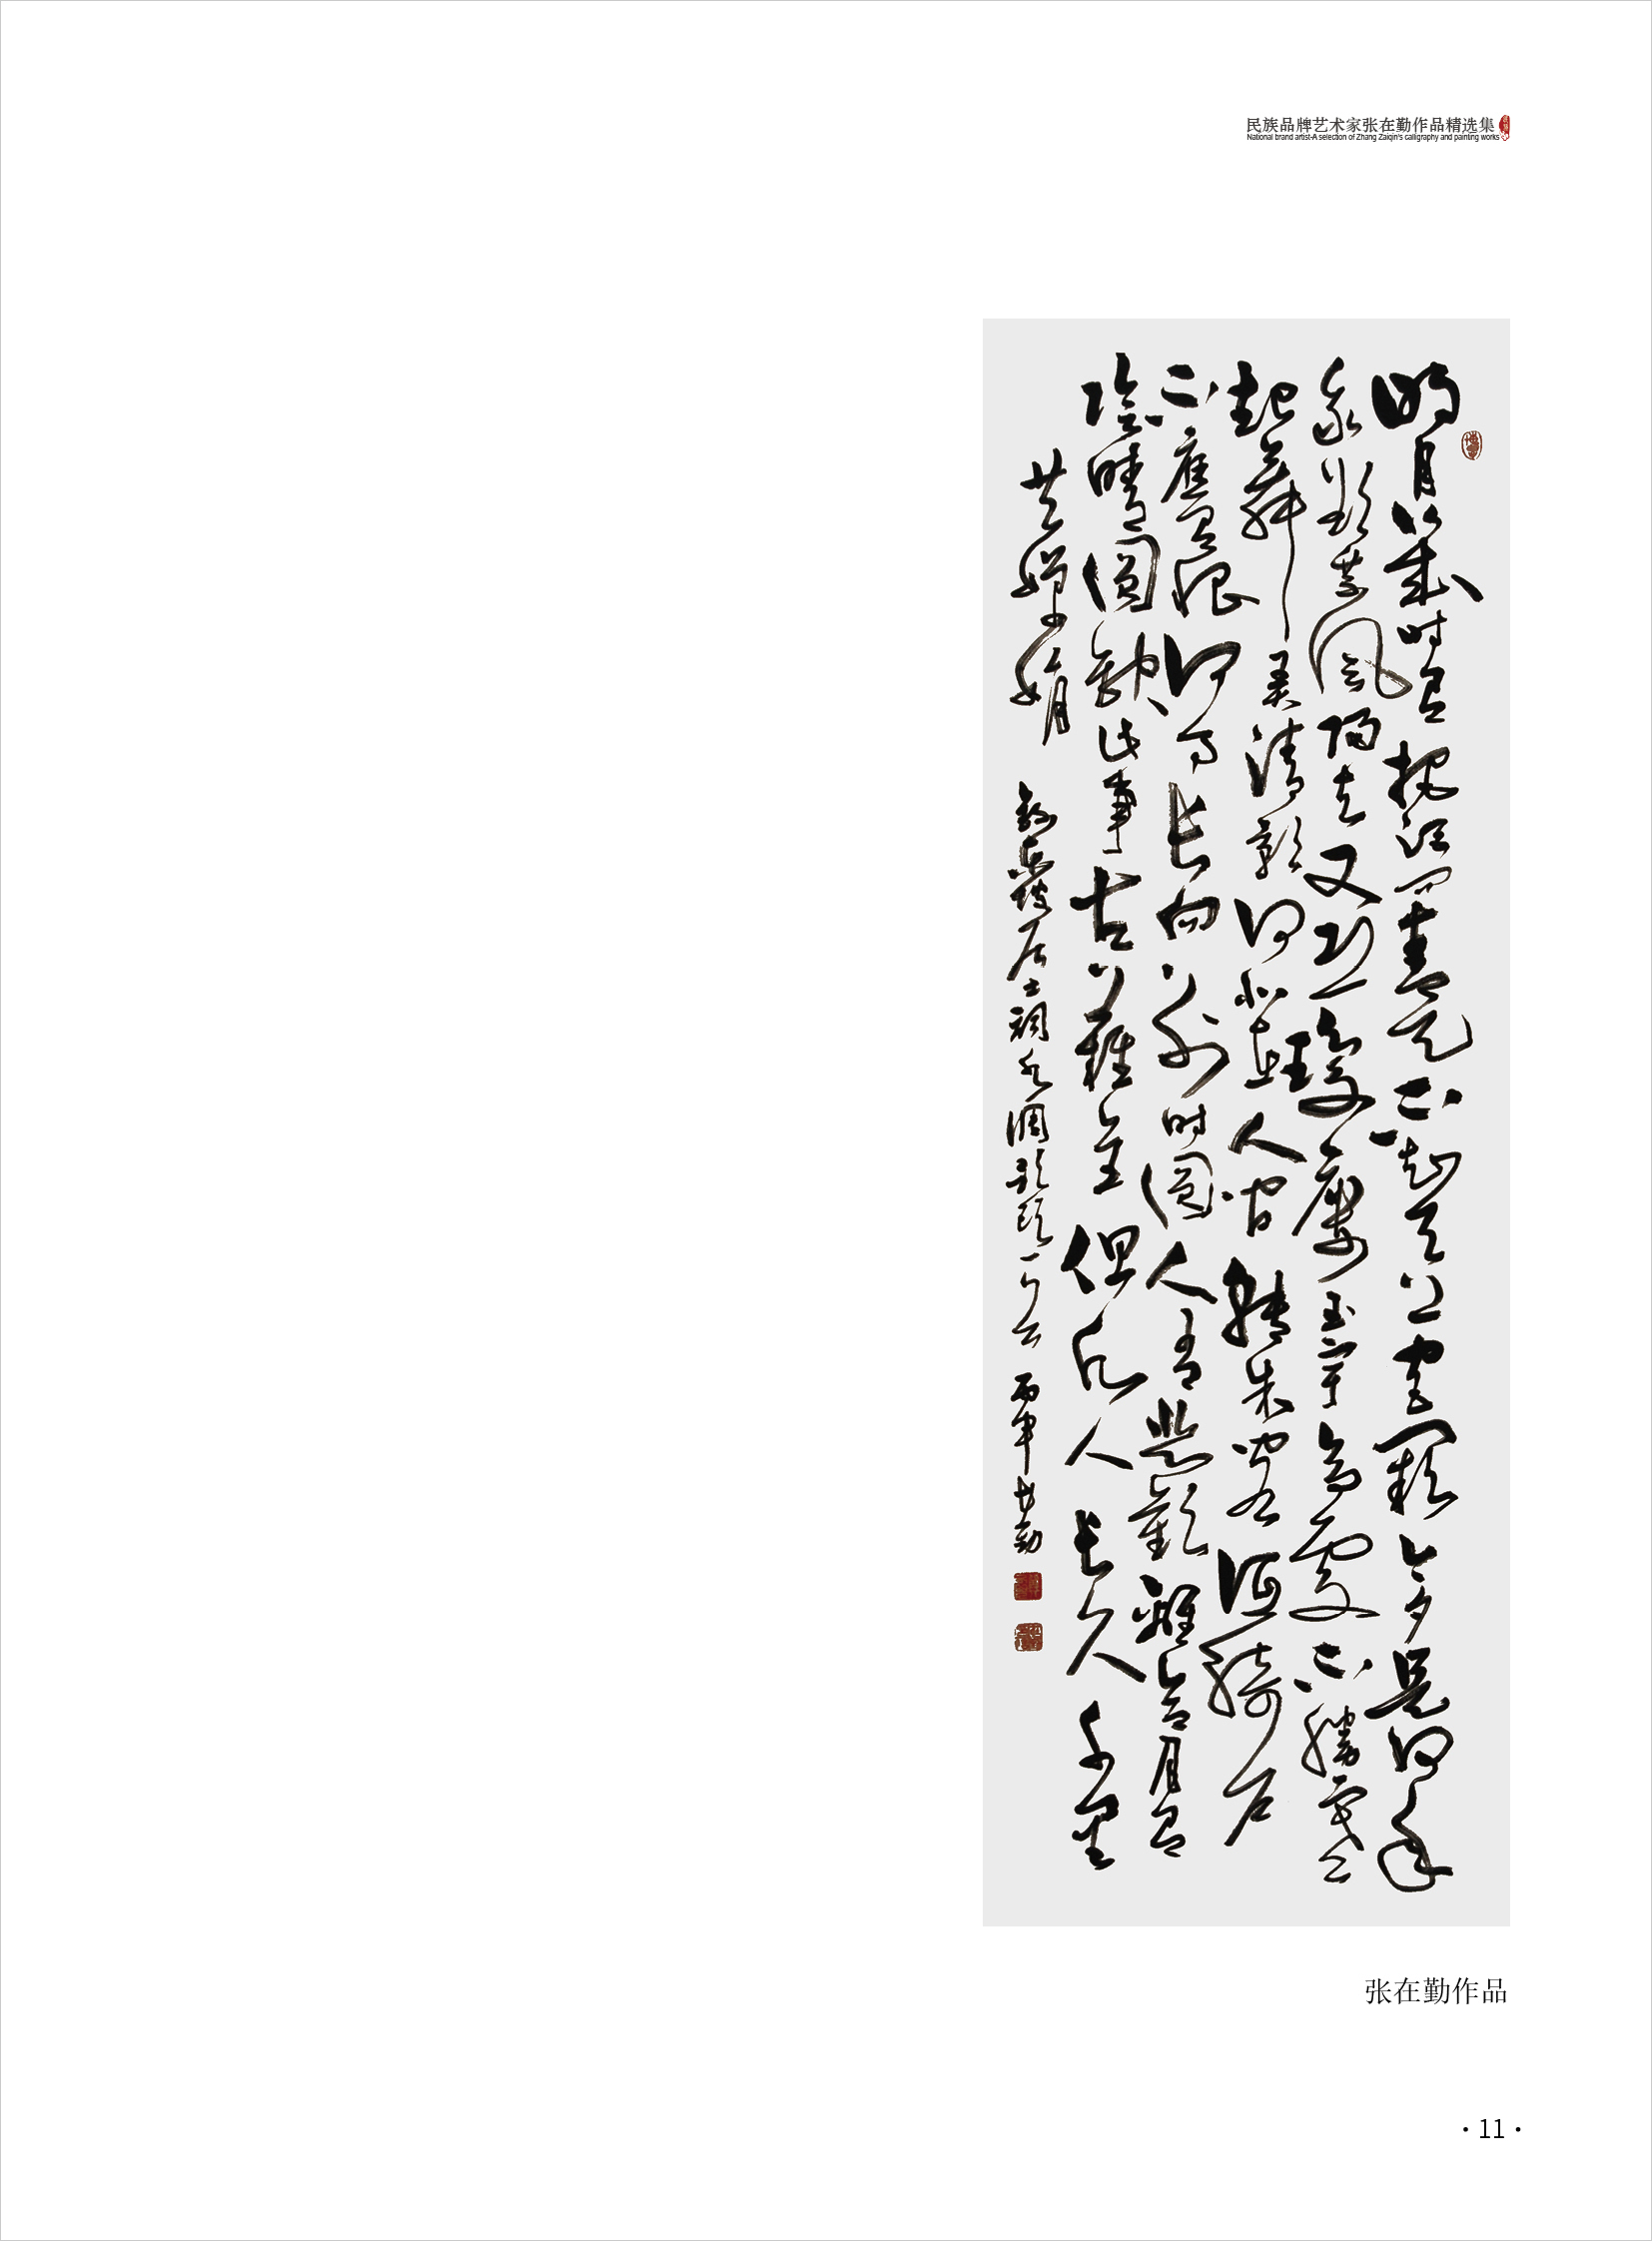 民族品牌艺术家张在勤作品精选集
National brand artist-A selection of Zhang Zaiqin's calligraphy and painting works
明月幾时有把酒问青天不知天上宫阙今夕是何年
我欲乘風歸去又恐瓊樓玉宇高處不勝寒
起舞弄清影何似在人间轉朱閣低綺户
不應有恨何事长向别时圓人有悲歡離合月有
陰晴圓缺此事古難全但願人长久千里
共嬋娟 錄東坡居士詞水调歌頭一首 丙申 在勤
张在勤作品
· 11 ·